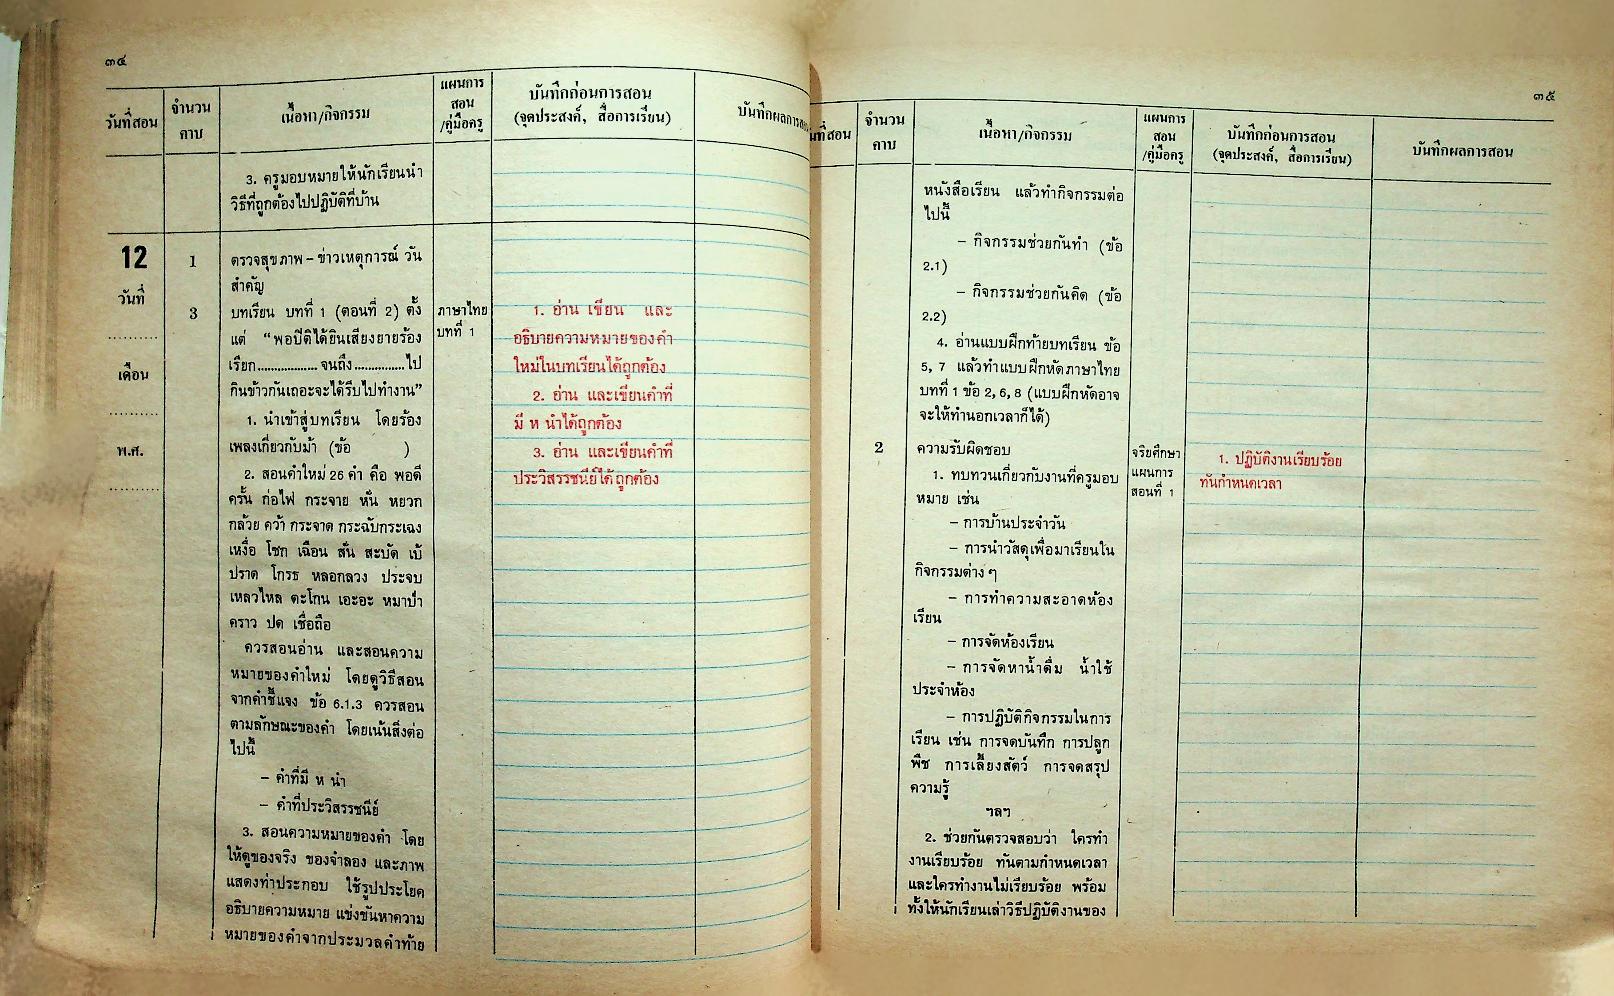 ๓๔
วันที่สอน
จำนวน
คาบ
เนื้อหา/กิจกรรม
แผนการ
สอน
/คู่มือครู
บันทึกก่อนการสอน
(จุดประสงค์, สื่อการเรียน)
บันทึกผลการสอน
3. ครูมอบหมายให้นักเรียนนำ
วิธีที่ถูกต้องไปปฏิบัติที่บ้าน
12
วันที่
..........
เดือน
..........
พ.ศ.
..........
1
ตรวจสุขภาพ – ข่าวเหตุการณ์ วัน
สำคัญ
3
บทเรียน บทที่ 1 (ตอนที่ 2) ตั้ง
แต่ “พอปิติได้ยินเสียงยายร้อง
เรียก.................. จนถึง ...............ไป
กินข้าวกันเถอะจะได้รีบไปทำงาน”
1. นำเข้าสู่บทเรียน โดยร้อง
เพลงเกี่ยวกับม้า (ข้อ )
2. สอนคำใหม่ 26 คำ คือ พอดี
ครั้น ก่อไฟ กระจาย หั่น หยวก
กล้วย คว้า กระจาด กระฉับกระเฉง
เหงื่อ โชก เฉือน สั่น สะบัด เบ้
ปราด โกรธ หลอกลวง ประจบ
เหลวไหล ตะโกน เอะอะ หมาป่า
คราว ปด เชื่อถือ
ควรสอนอ่าน และสอนความ
หมายของคำใหม่ โดยดูวิธีสอน
จากคำชี้แจง ข้อ 6.1.3 ควรสอน
ตามลักษณะของคำ โดยเน้นสิ่งต่อ
ไปนี้
– คำที่มี ห นำ
– คำที่ประวิสรรชนีย์
3. สอนความหมายของคำ โดย
ให้ดูของจริง ของจำลอง และภาพ
แสดงท่าประกอบ ใช้รูปประโยค
อธิบายความหมาย แข่งขันหาความ
หมายของคำจากประมวลคำท้าย
ภาษาไทย
บทที่ 1
1. อ่าน เขียน และ
อธิบายความหมายของคำ
ใหม่ในบทเรียนได้ถูกต้อง
2. อ่าน และเขียนคำที่
มี ห นำได้ถูกต้อง
3. อ่าน และเขียนคำที่
ประวิสรรชนีย์ได้ถูกต้อง
๓๕
วันที่สอน
จำนวน
คาบ
เนื้อหา/กิจกรรม
แผนการ
สอน
/คู่มือครู
บันทึกก่อนการสอน
(จุดประสงค์, สื่อการเรียน)
บันทึกผลการสอน
หนังสือเรียน แล้วทำกิจกรรมต่อ
ไปนี้
– กิจกรรมช่วยกันทำ (ข้อ
2.1)
– กิจกรรมช่วยกันคิด (ข้อ
2.2)
4. อ่านแบบฝึกท้ายบทเรียน ข้อ
5, 7 แล้วทำแบบฝึกหัดภาษาไทย
บทที่ 1 ข้อ 2, 6, 8 (แบบฝึกหัดอาจ
จะให้ทำนอกเวลาก็ได้)
2
ความรับผิดชอบ
1. ทบทวนเกี่ยวกับงานที่ครูมอบ
หมาย เช่น
– การบ้านประจำวัน
– การนำวัสดุเพื่อมาเรียนใน
กิจกรรมต่าง ๆ
– การทำความสะอาดห้อง
เรียน
– การจัดห้องเรียน
– การจัดหาน้ำดื่ม น้ำใช้
ประจำห้อง
– การปฏิบัติกิจกรรมในการ
เรียน เช่น การจดบันทึก การปลูก
พืช การเลี้ยงสัตว์ การจดสรุป
ความรู้
ฯลฯ
2. ช่วยกันตรวจสอบว่า ใครทำ
งานเรียบร้อย ทันตามกำหนดเวลา
และใครทำงานไม่เรียบร้อย พร้อม
ทั้งให้นักเรียนเล่าวิธีปฏิบัติงานของ
จริยศึกษา
แผนการ
สอนที่ 1
1. ปฏิบัติงานเรียบร้อย
ทันกำหนดเวลา